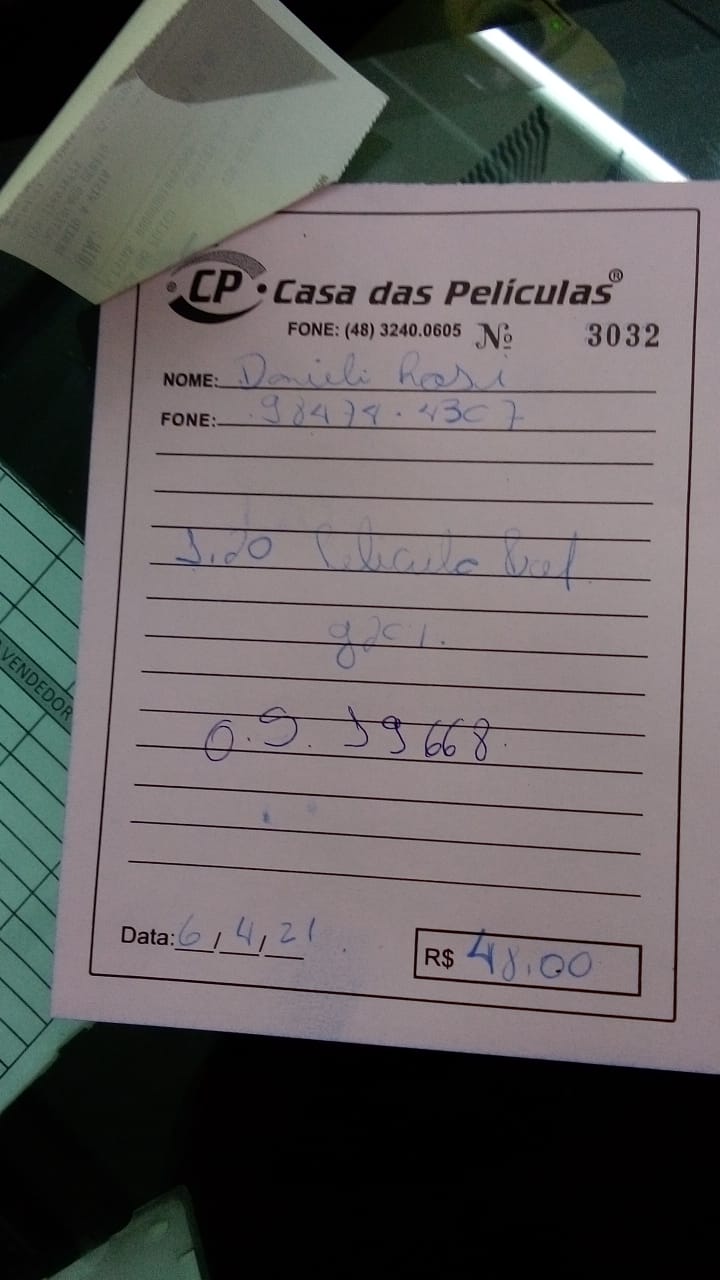 CP • Casa das Películas®
FONE: (48) 3240.0605 Nº 3032
NOME: Danieli
FONE: 98474.4307
1.20 Película
O.S. 19668.
Data: 6/4/21
R$ 48,00
VENDEDOR